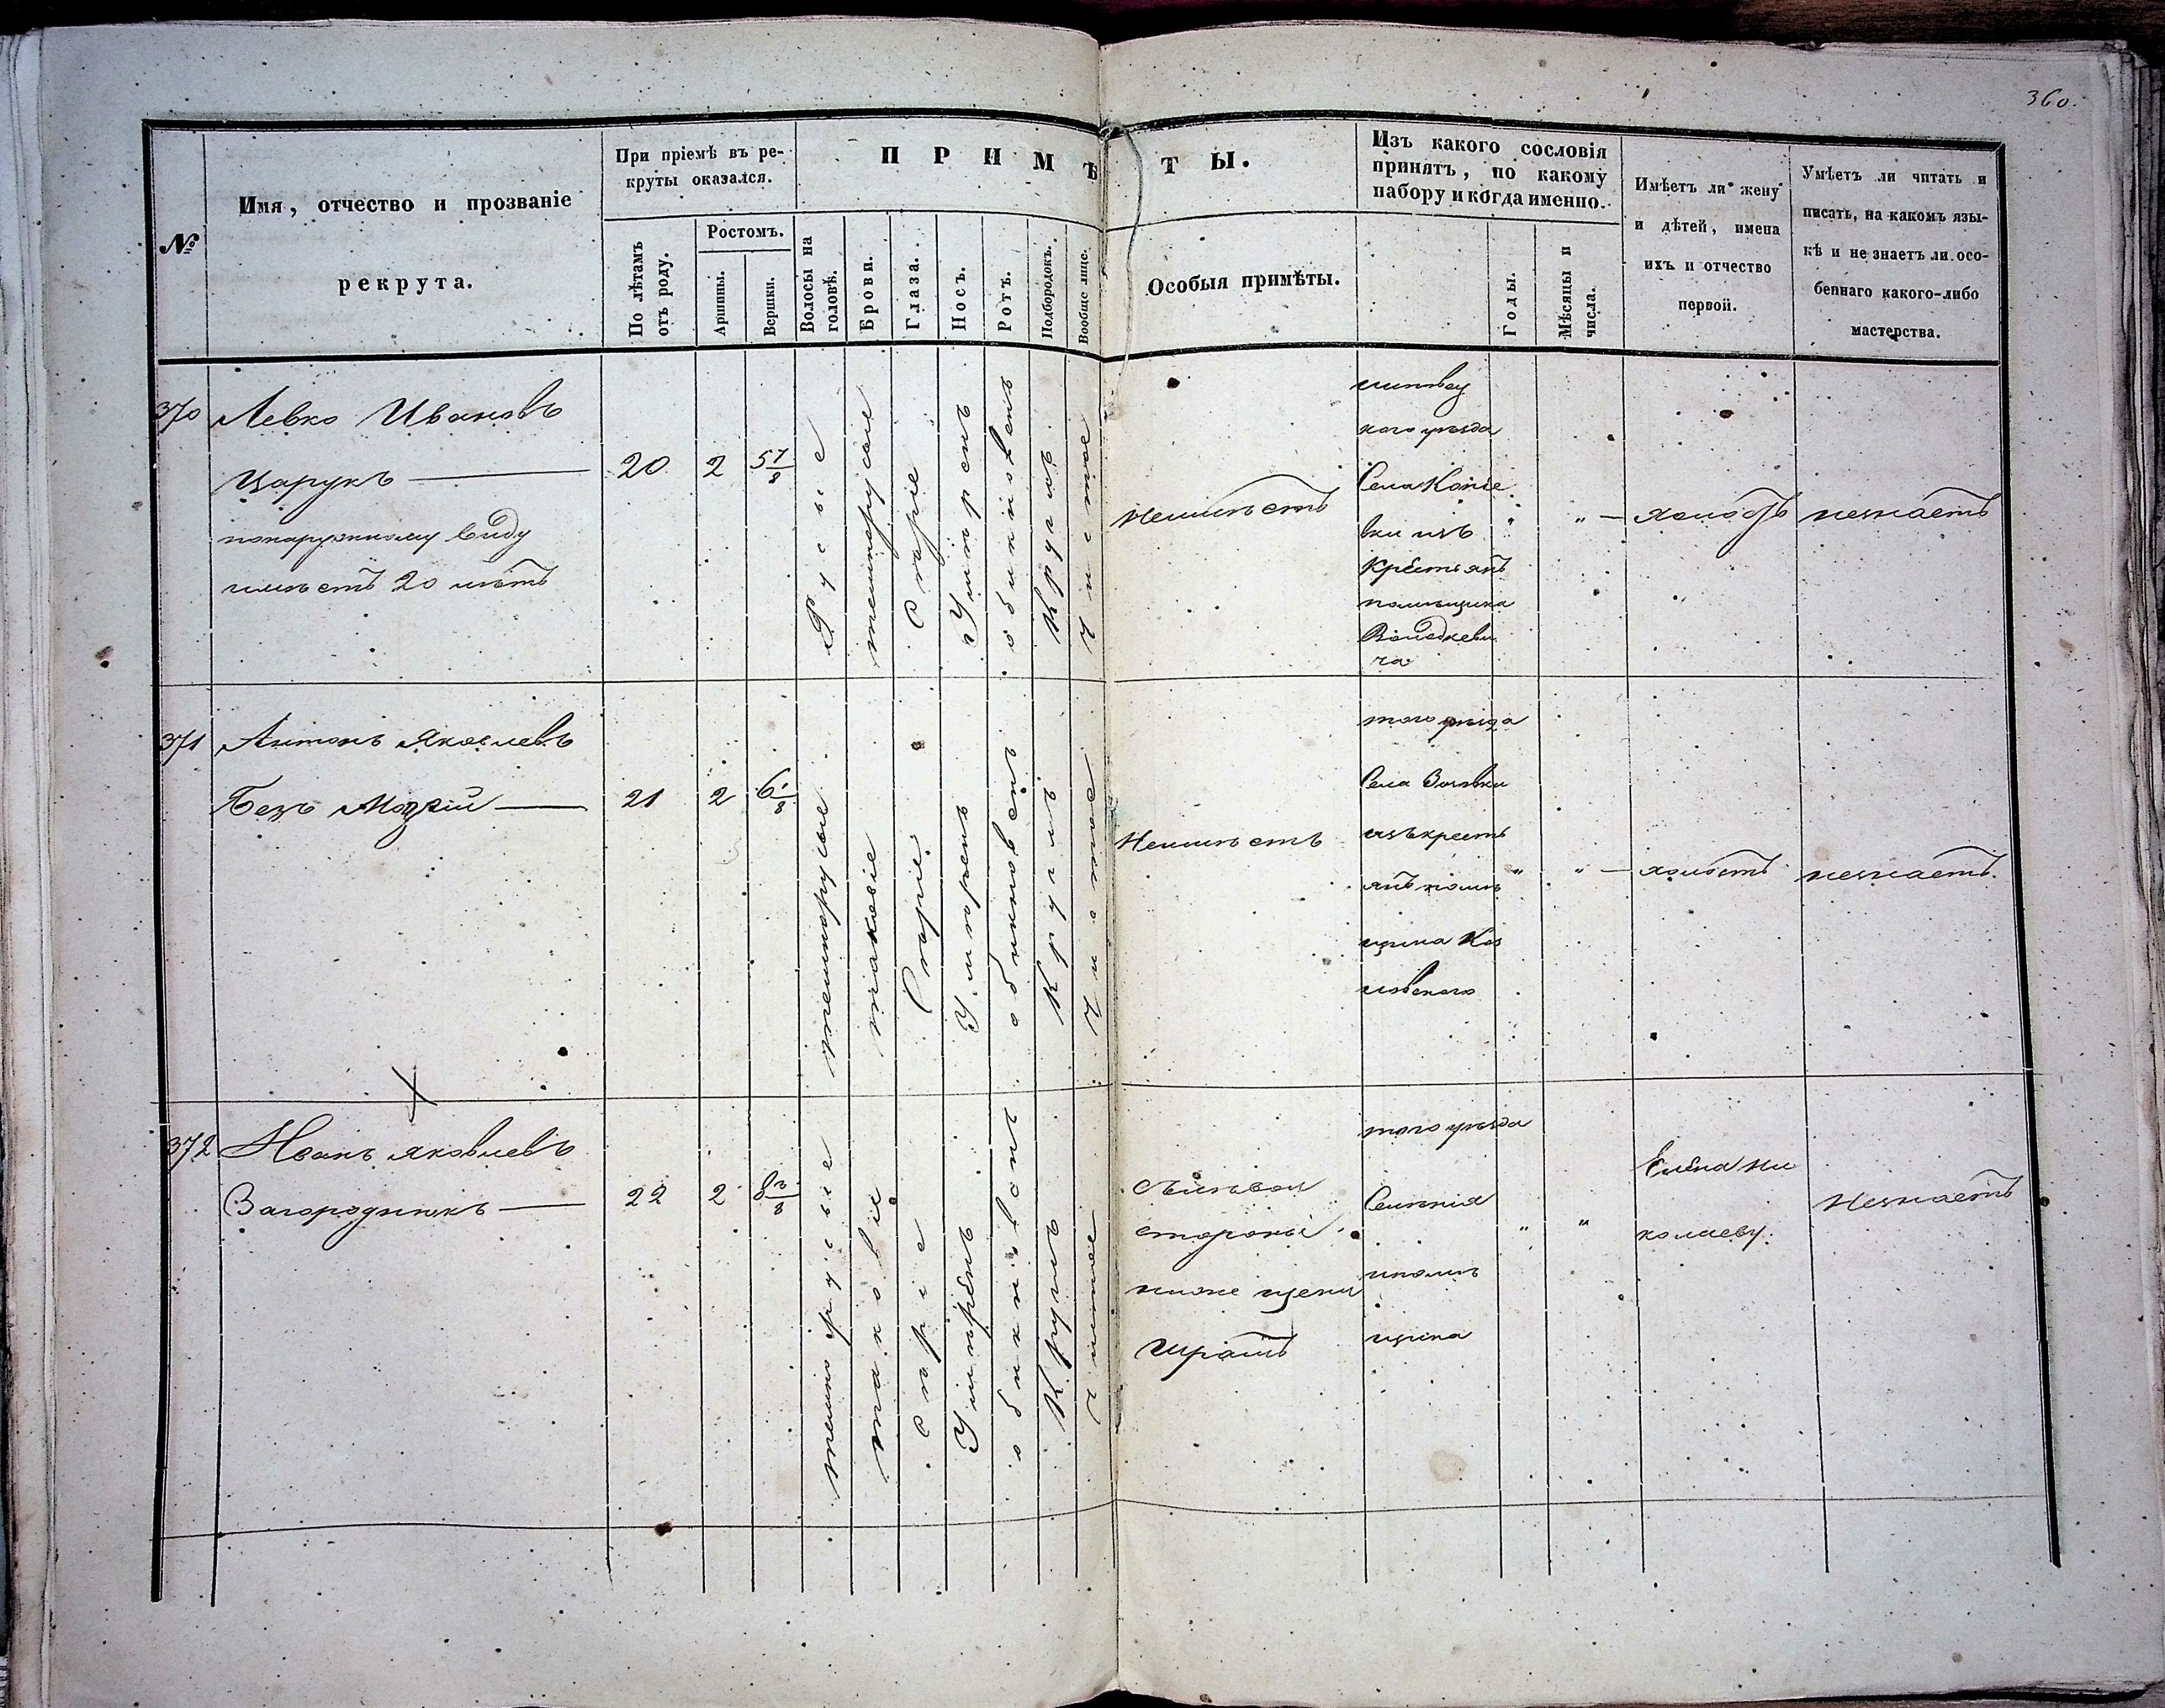 360.
№
Имя, отчество и прозваніе
рекрута.
При пріемѣ въ ре-
круты оказался.
По лѣтамъ
отъ роду.
Ростомъ.
Аршины.
Вершки.
ПРИМѢТЫ.
Волосы на
головѣ.
Брови.
Глаза.
Носъ.
Ротъ.
Подбородокъ.
Вообще лице.
Особыя примѣты.
Изъ какого сословія
принятъ, по какому
набору и когда именно.
Годы.
Мѣсяцы и
числа.
Имѣетъ ли жену
и дѣтей, имена
ихъ и отчество
первой.
Умѣетъ ли читать и
писать, на какомъ язы-
кѣ и не знаетъ ли осо-
беннаго какого-либо
мастерства.
370
Левко Ивановъ
Царукъ
понаружному виду
имѣетъ 20 лѣтъ
20
2
5 7/8
Русые
темнорусые
Сѣрые
Умѣренъ
обикновенъ
Круглъ
Чистое
Неимѣетъ
кого уѣзда
Села Копіе
вки изъ
Крестьянъ
помѣщика
Володкеви
ча
" "
холостъ
незнаетъ
371
Антонъ Яковлевъ
Безъ
21
2
6 1/8
темнорусые
таковіе
Сѣріе
Умѣренъ
обикновенъ
Круглъ
Чистое
Неимѣетъ
того уѣзда
Села
изъ крестъ
янъ помѣ
щика Коз
ловского
" "
холостъ
незнаетъ.
372
Иванъ Яковлевъ
Загороднюкъ
22
2
8 3/8
темно русые
таковіе
Сѣріе
Умѣренъ
обикновенъ
Круглъ
чистое
Слѣвой
стороны
ниже щеки
Шрамъ
того уѣзда
помѣ
щика
" "
Елена Ни
колаева
Незнаетъ